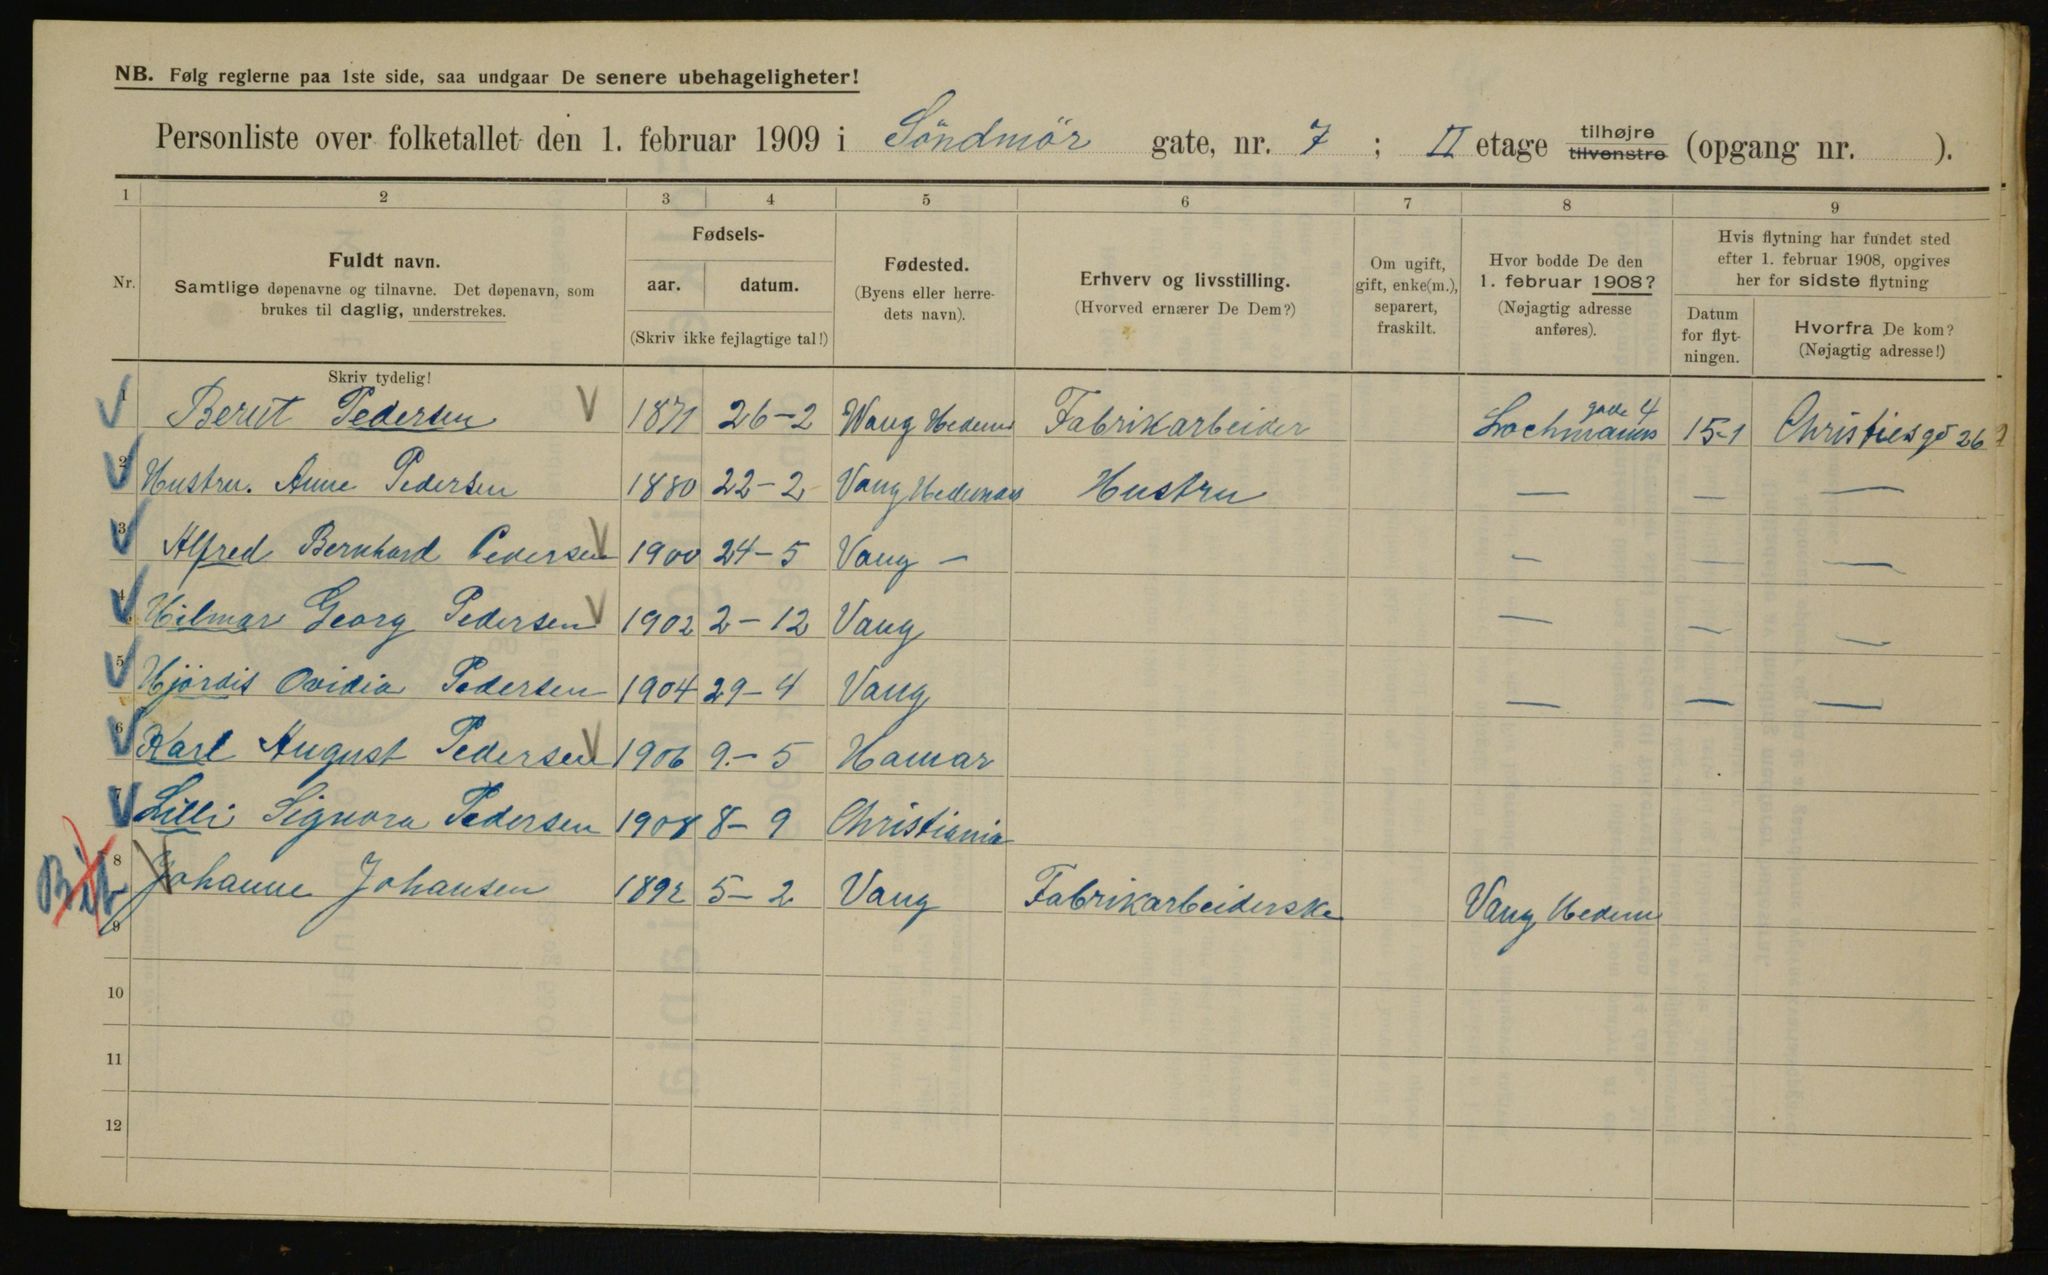 NB. Følg reglerne paa 1ste side, saa undgaar De senere ubehageligheter!
Personliste over folketallet den 1. februar 1909 i Söndmör gate, nr. 7 ; II etage tilhøjre tilvenstre (opgang nr. ).
1 2 3 4 5 6 7 8 9
Nr.
Fuldt navn.
Samtlige døpenavne og tilnavne. Det døpenavn, som
brukes til daglig, understrekes.
Fødsels-
aar. datum.
(Skriv ikke fejlagtige tal!)
Fødested.
(Byens eller herre-
dets navn).
Erhverv og livsstilling.
(Hvorved ernærer De Dem?)
Om ugift,
gift, enke(m.),
separert,
fraskilt.
Hvor bodde De den
1. februar 1908?
(Nøjagtig adresse
anføres).
Hvis flytning har fundet sted
efter 1. februar 1908, opgives
her for sidste flytning
Datum
for flyt-
ningen.
Hvorfra De kom?
(Nøjagtig adresse!)
Skriv tydelig!
1 Bernt Pedersen V 1871 26-2 Wang Hedem Fabrikarbeider Lochmanns gade 4 15-1 Christiesgd 26
2 Hustru. Anne Pedersen 1880 22-2 Vang Hedemark Hustru — — —
3 Alfred Bernhard Pedersen V 1900 24-5 Vang — — — —
4 Hilmar Georg Pedersen V 1902 2-12 Vang — — —
5 Hjördis Ovidia Pedersen 1904 29-4 Vang — — —
6 Karl August Pedersen V 1906 9.-5 Hamar
7 Lilli Signora Pedersen 1908 8-9 Christiania
8 Johanne Johansen 1892 5-2 Vang Fabrikarbeiderske Vang Hedem
9
10
11
12